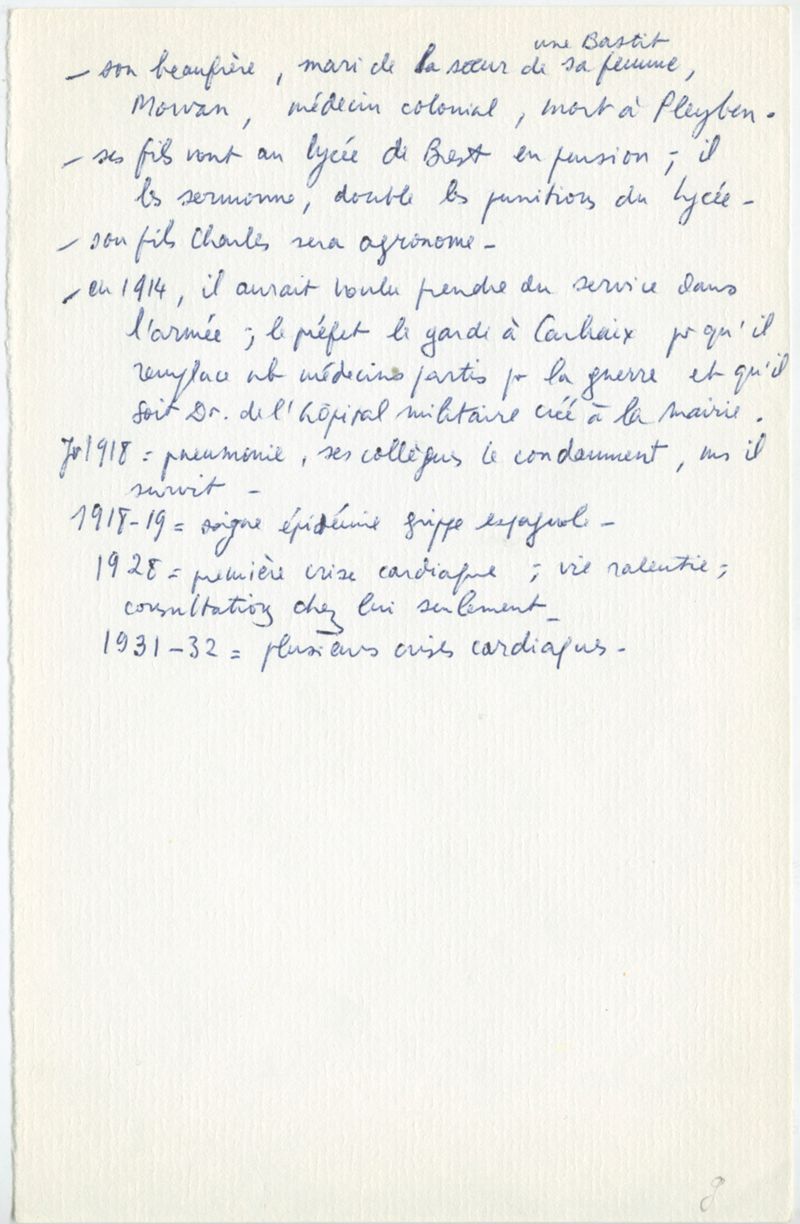 une Bastit
– son beaufrère, mari de la sœur de sa femme,
Morvan, médecin colonial, mort à Pleyben.
– ses fils vont au lycée de Brest en pension ; il
les sermonne, double les punitions du lycée –
– son fils Charles sera agronome –
– en 1914, il aurait voulu prendre du service dans
l'armée ; le préfet le garde à Carhaix pr qu'il
remplace nb médecins partis pr la guerre et qu'il
soit Dr. de l'hôpital militaire créé à la mairie.
1918 = pneumonie, ses collègues le condamnent, ms il
survit –
1918-19 = soigne épidémie grippe espagnole –
1928 = première crise cardiaque ; vie ralentie ;
consultations chez lui seulement –
1931-32 = plusieurs crises cardiaques –